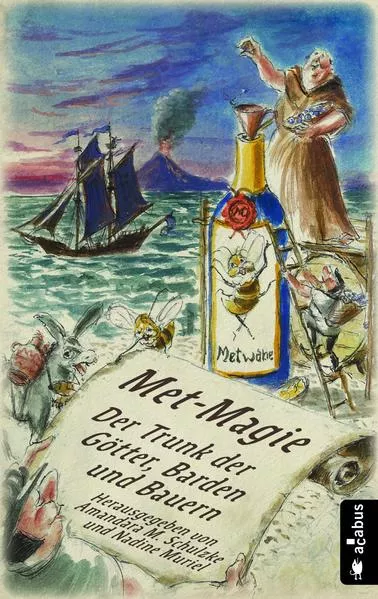 Metwabe
Met-Magie
Der Trunk der
Götter, Barden
und Bauern
Herausgegeben von
Amandara M. Schulzke
und Nadine Muriel
acabus